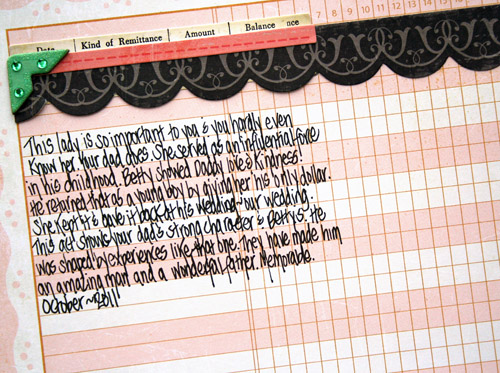 Date Kind of Remittance Amount Balance nce
This lady is so important to you & you hardly even
know her. Your dad does. She served as an influential force
in his childhood. Betty showed Daddy love & kindness!
He returned that as a young boy by giving her his only dollar.
She kept it & gave it back at his wedding~our wedding.
This act shows your dad's strong character & Betty's. He
was shaped by experiences like that one. They have made him
an amazing man and a wonderful father. Memorable.
October~2011